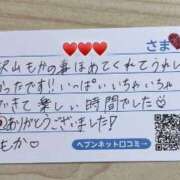 さま
沢山もかの事ほめてくれてうれし
かったです!!いっぱいいちゃいちゃ
できて楽しい時間でした♡
ありがとうございました!
もか♡
ヘブンネット口コミ→